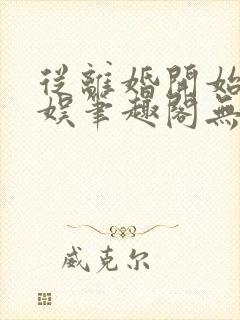 從離婚開始
娛筆趣閣無
威克尔